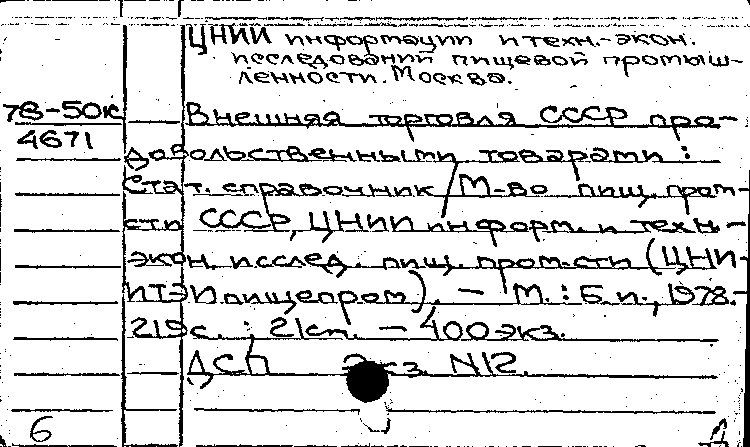 ЦНИИ информации и техн.-экон.
исследований пищевой промыш-
ленности. Москва.
78-50к
4671
Внешняя торговля СССР про-
довольственными товарами :
Стат. справочник / М-во пищ. пром-
сти СССР, ЦНИИ информ. и техн.-
экон. исслед. пищ. пром-сти (ЦНИ-
ИТЭИпищепром). — М. : Б.и., 1978.-
219с. ; 21см. — 400экз.
ДСП Экз. N12.
6